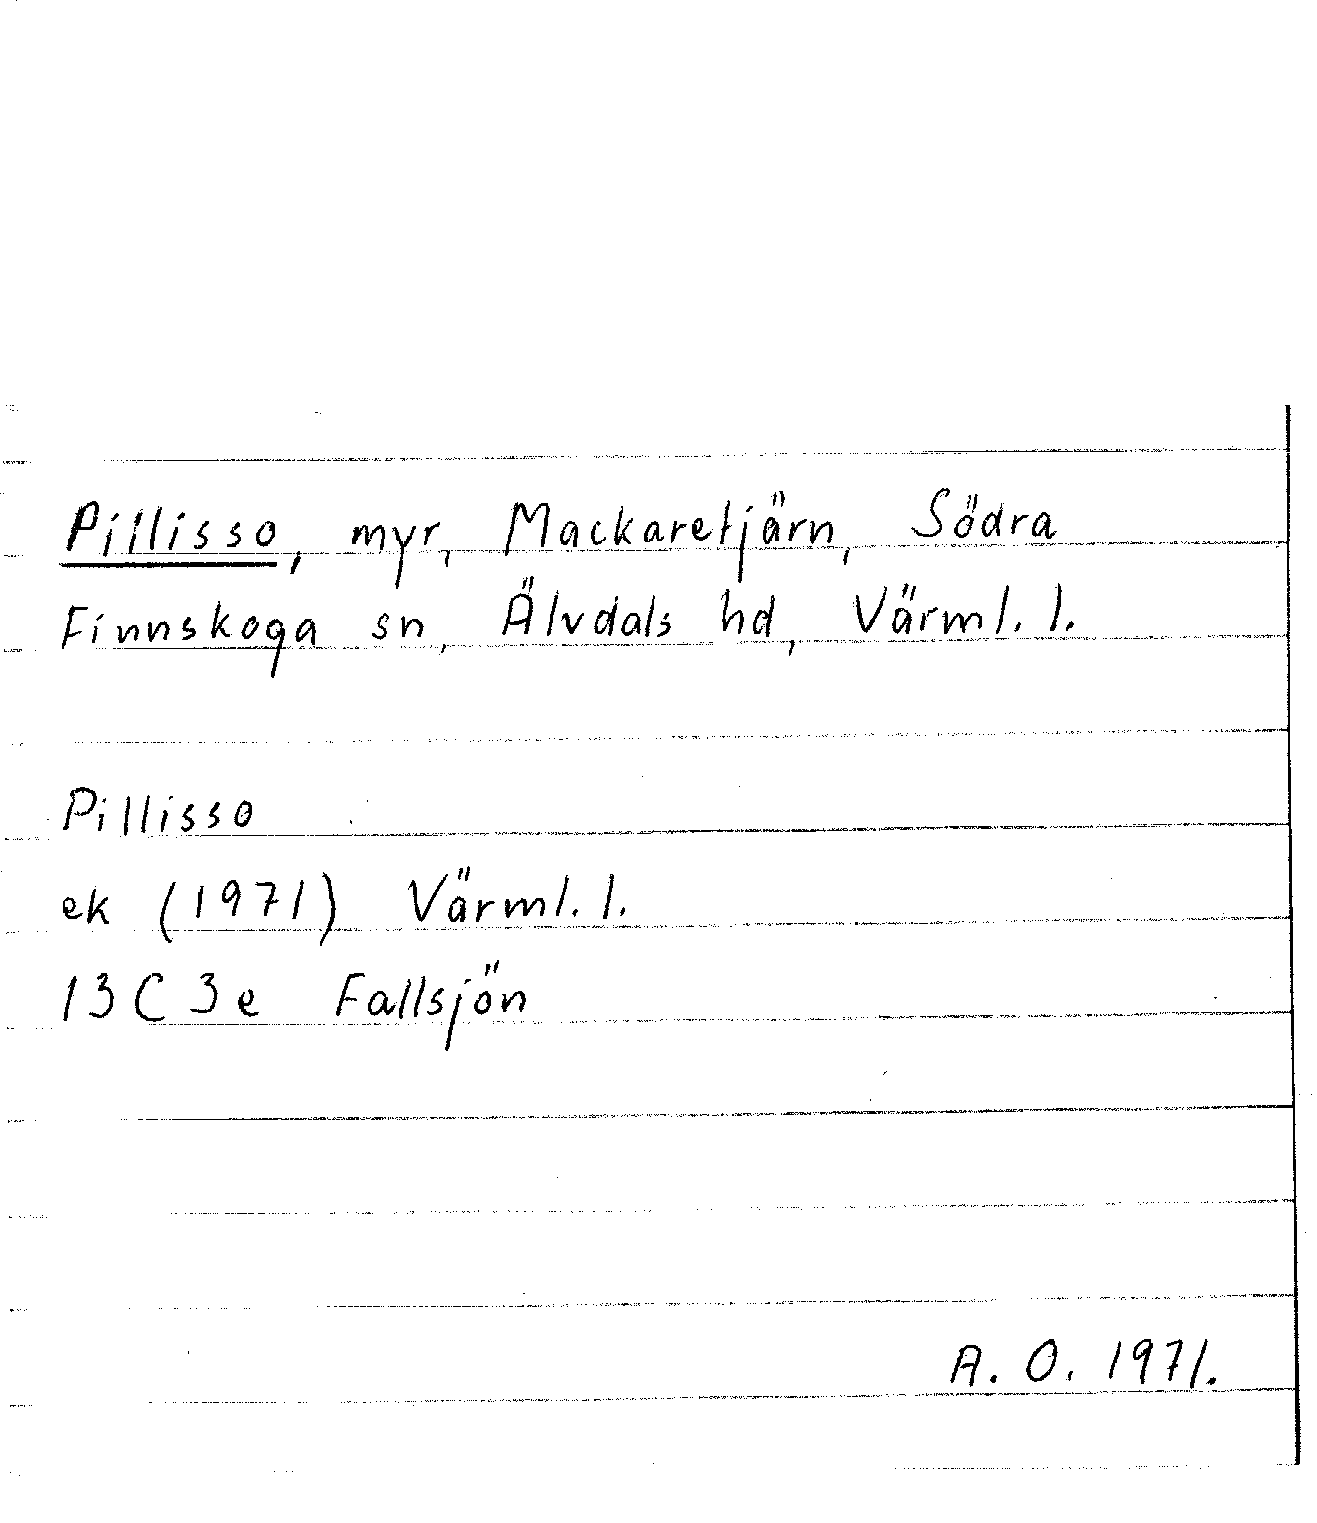 Pillisso, myr, Mackaretjärn, Södra
Finnskoga sn, Älvdals hd, Värml. l.
Pillisso
ek (1971) Värml. l.
13 C 3 e Fallsjön
A. O. 1971.